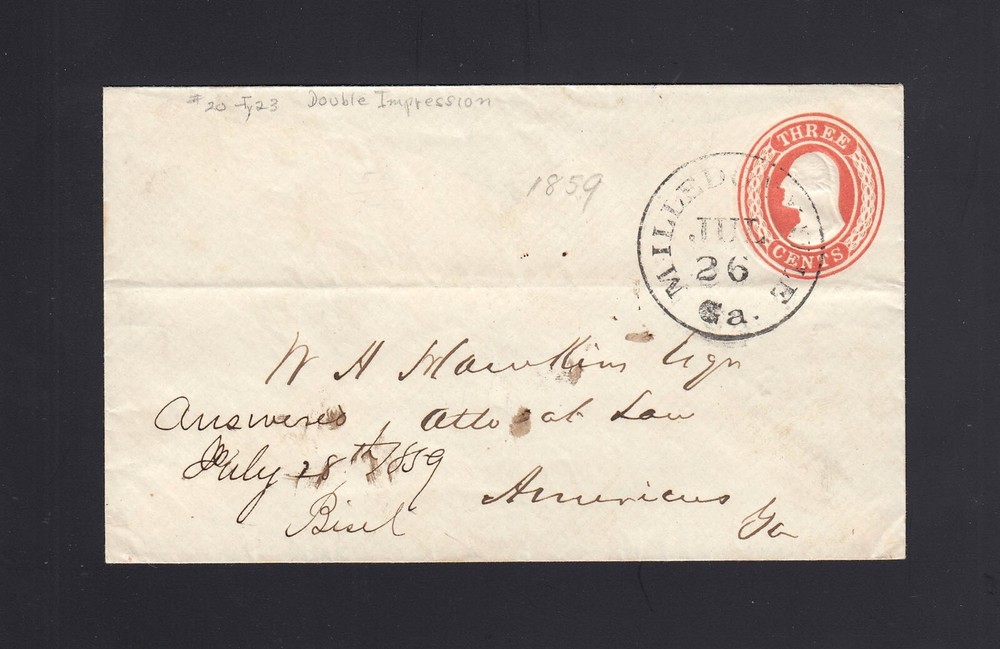 #20-Ty23 Double Impression
THREE
CENTS
1859
MILLEDGEVILLE
JUL
26
Ga.
W H Hawkins Esqr
Answered Atto at Law
July 28th 1859
Americus
Ga